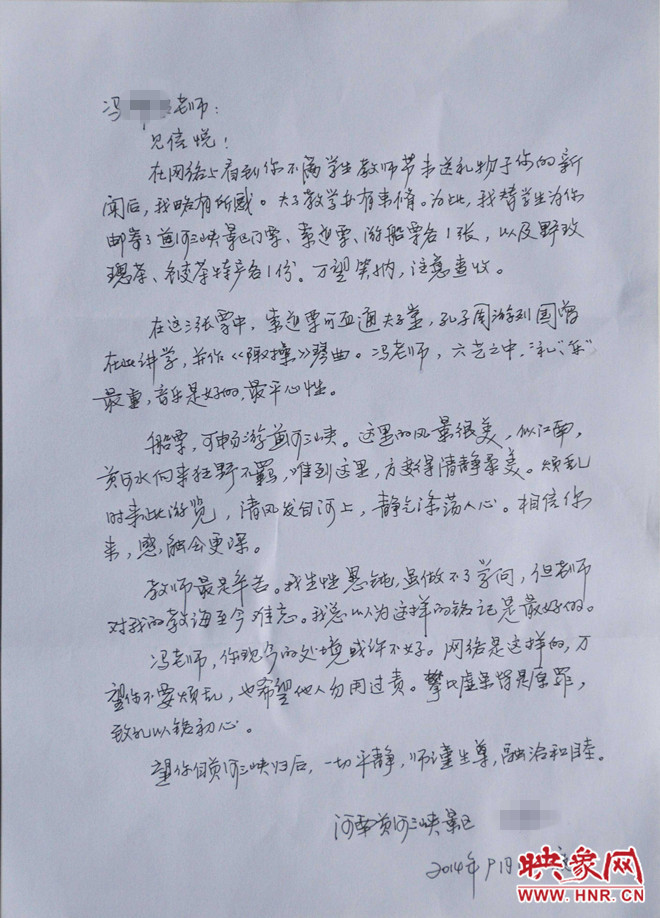 冯 老师：
见信悦！
在网络上看到你不满学生教师节未送礼物于你的新
闻后，我略有所感。夫子教学亦有束脩。为此，我替学生为你
邮寄了黄河三峡景区门票、索道票、游船票各1张，以及野玫
瑰茶、冬凌茶特产各1份。万望笑纳，注意查收。
在这三张票中，索道票可直通夫子堂，孔子周游列国曾
在此讲学，并作《陬操》琴曲。冯老师，六艺之中，“礼”“乐”
最重，音乐是好的，最平心性。
船票，可畅游黄河三峡。这里的风景很美，似江南，
黄河水向来狂野不羁，唯到这里，方变得清静柔美。烦乱
时来此游览，清风发自河上，静气涤荡人心。相信你
来，感触会更深。
教师最是辛苦。我生性愚钝，虽做不了学问，但老师
对我的教诲至今难忘。我总以为这样的铭记是最好的。
冯老师，你现今的处境或许不好。网络是这样的，万
望你不要烦乱，也希望他人勿用过责。攀比虚荣皆是原罪，
致礼以铭初心。
望你自黄河三峡归后，一切平静，师谨生尊，融洽和睦。
河南黄河三峡景区
2014年9月
映象网
WWW.HNR.CN